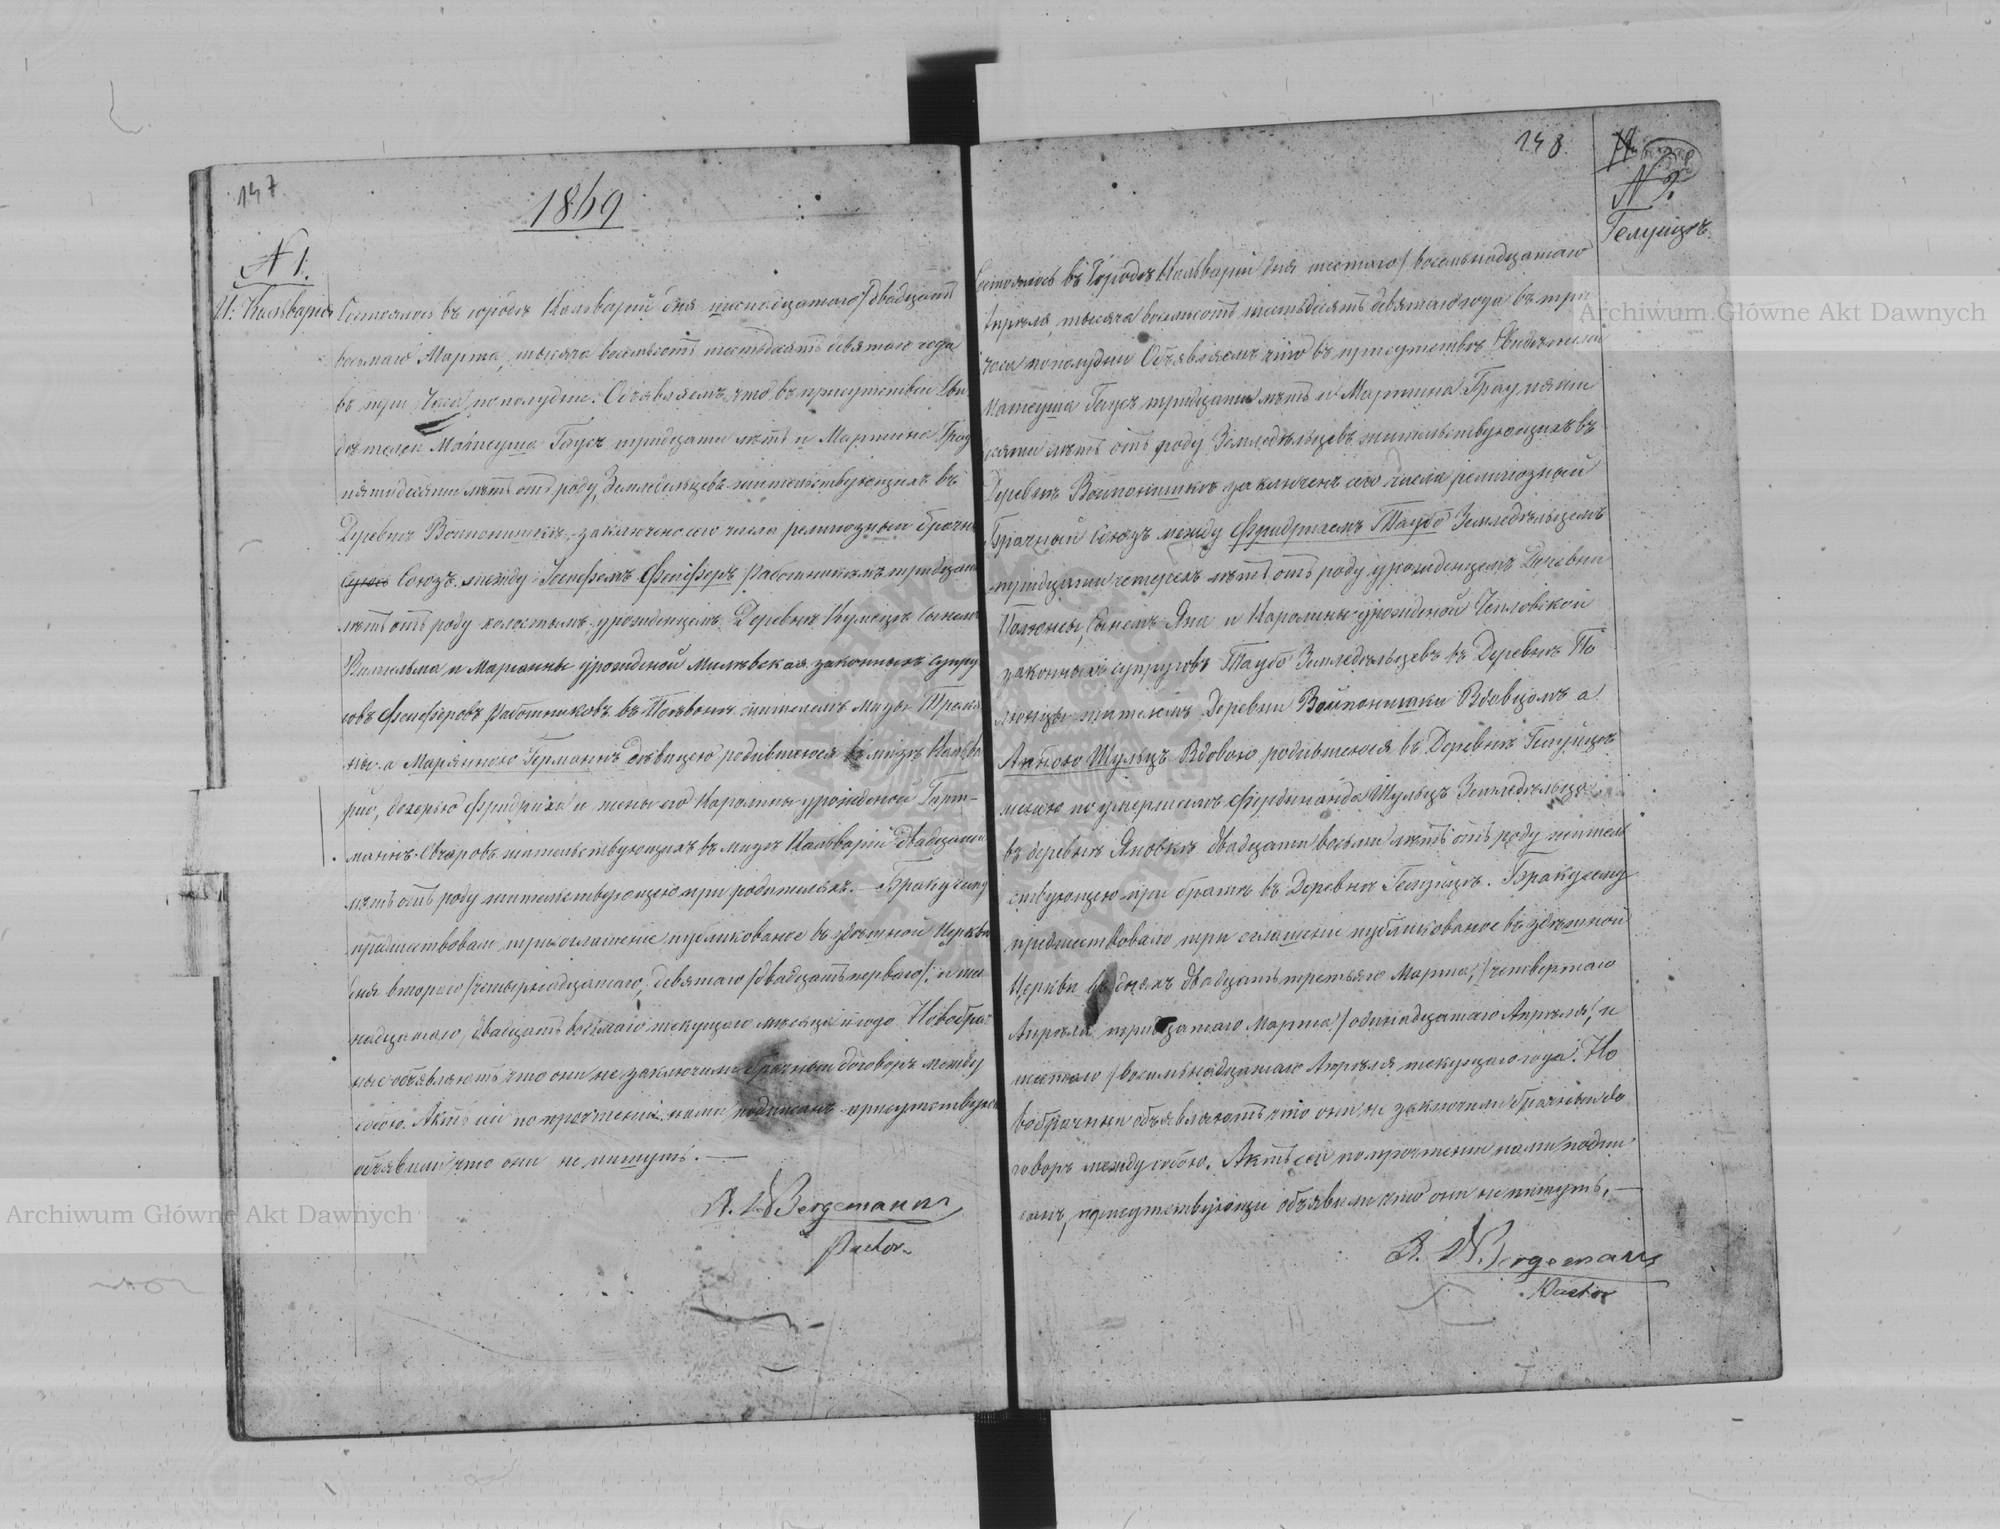 147
1869
N 1.
И: Кальварія
Состоялось въ городѣ Кальваріи дня шеснадцатаго / двадцать
восьмаго Марта, тысяча восемьсотъ шестьдесятъ девятаго года
въ три часа пополудни. Объявляемъ что въ присутствіи Сви
дѣтелей Матеуша Гаусъ тридцати лѣтъ и Мартина Грау
пятидесяти лѣтъ отъ роду, Земледѣльцевъ жительствующихъ въ
Деревнѣ Войпонишки, заключено сего числа религіозный брачн
Союзъ между Іосифомъ Фейферъ работникомъ тридцати
лѣтъ отъ роду холостымъ урожденцемъ Деревни Сыномъ
Вильгельма и Маріанны урожденой Милевская законныхъ супру
говъ Фейферовъ работниковъ въ жителемъ Мызы
а Маріянною Германнъ дѣвицею родившеюся въ мызѣ Кальва
ріи, дочерью Фридриха и жены его Каролины урожденой Гарт-
маннъ Овчаровъ жительствующихъ въ мызѣ Кальваріи двадцати
лѣтъ отъ роду жительствующею при родителяхъ. — Браку сему
предшествовали три оглашеніе публикованое въ здѣшной Церкви
дня втораго / четырнадцатаго, девятаго / двадцать перваго / и шес
надцатаго / двадцать восьмаго текущаго мѣсяца и года. Новобрач
ные объявляютъ что они не заключили брачный договоръ между
собою. Актъ сей по прочтеніи нами подписанъ присутствующ
объявили что они не пишутъ. —
A. W Bergemann
Pastor.
148.
N 2.
Гелуйцсъ
Состоялось въ Городѣ Кальваріи дня шестаго / восемьнадцатаго
Апрѣля, тысяча восемьсотъ шестьдесятъ девятаго года въ три
часа пополудни Объявляемъ что въ присутствіи Свидѣтелей
Матеуша Гаусъ тридцати лѣтъ и Мартина Грау пяти
сяти лѣтъ отъ роду Земледѣльцевъ жительствующихъ въ
Деревнѣ Войпонишки заключенъ сего числа религіозный
Брачный Союзъ между Фридрихомъ Таубо Земледѣльцемъ
тридцати четерехъ лѣтъ отъ роду урожденцемъ Деревни
Сыномъ Яна и Каролины урожденой Чепловской
законныхъ супруговъ Таубо Земледѣльцевъ въ Деревнѣ По
жителемъ Деревни Войпонишки Вдовцомъ а
Анною Шульцъ Вдовою родившеюся въ Деревнѣ
по умершемъ Фердинанда Шульцъ Земледѣльца
въ деревнѣ Яновка двадцати восьми лѣтъ отъ роду жител
ствующею при братѣ въ Деревнѣ Браку сему
предшествовало три оглашеніе публикованое въ здѣшной
Церкви въ дняхъ двадцать третьяго Марта / четвертаго
Апрѣля тридцатаго Марта / одинадцатаго Апрѣля / и
шестаго / восемьнадцатаго Апрѣля текущаго года. Но
вобрачные объявляютъ что они не заключили брачный до
говоръ между собою. Актъ сей по прочтеніи нами подпи
санъ, присутствующіе объявили что они не пишутъ. —
A. W. Bergemann
Pastor
Archiwum Główne Akt Dawnych
Archiwum Główne Akt Dawnych